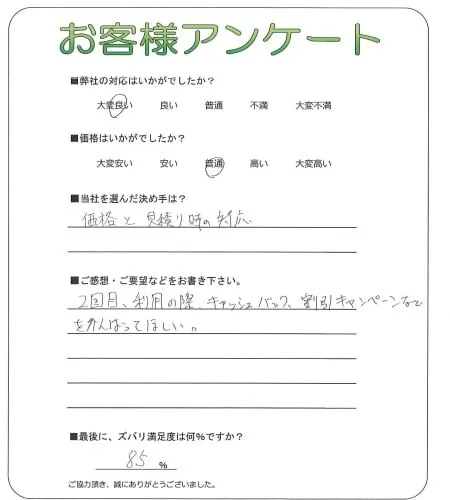 お客様アンケート
■弊社の対応はいかがでしたか？
大変良い 良い 普通 不満 大変不満
■価格はいかがでしたか？
大変安い 安い 普通 高い 大変高い
■当社を選んだ決め手は？
価格と見積り時の対応
■ご感想・ご要望などをお書き下さい。
2回目、利用の際、キャッシュバック、割引キャンペーンなど
をがんばってほしい。
■最後に、ズバリ満足度は何%ですか？
85 %
ご協力頂き、誠にありがとうございました。